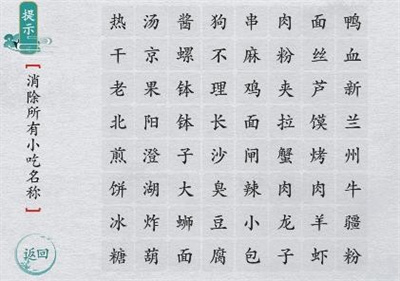 提示
[消除所有小吃名称]
返回
热汤酱狗串肉面鸭
干京螺不麻粉丝血
老果钵理鸡夹芦新
北阳钵长面拉馍兰
煎澄子沙闸蟹烤州
饼湖大臭辣肉肉牛
冰炸蛳豆小龙羊疆
糖葫面腐包子虾粉